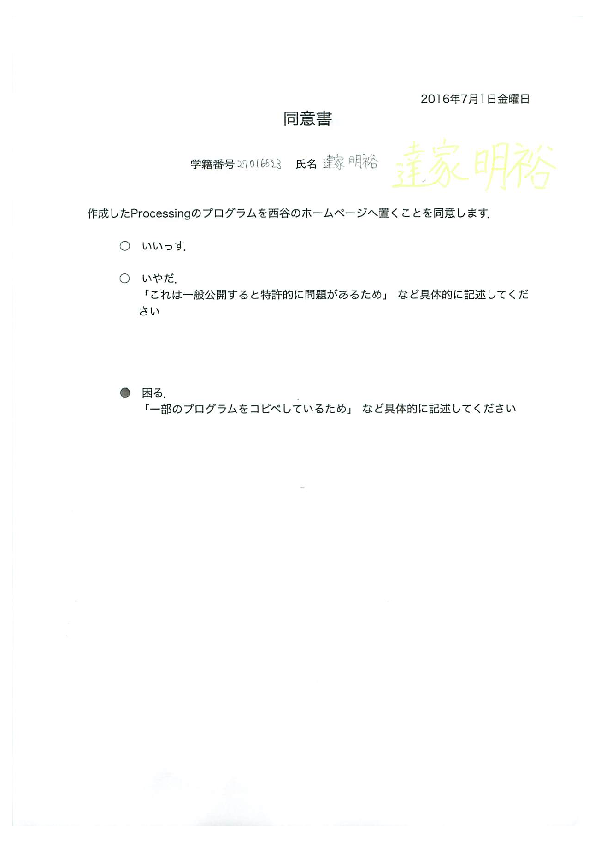 2016年7月1日金曜日
同意書
学籍番号 氏名 達家明裕
達家明裕
作成したProcessingのプログラムを西谷のホームページへ置くことを同意します.
○ いいっす.
○ いやだ.
「これは一般公開すると特許的に問題があるため」 など具体的に記述してくだ
さい
● 困る.
「一部のプログラムをコピペしているため」 など具体的に記述してください